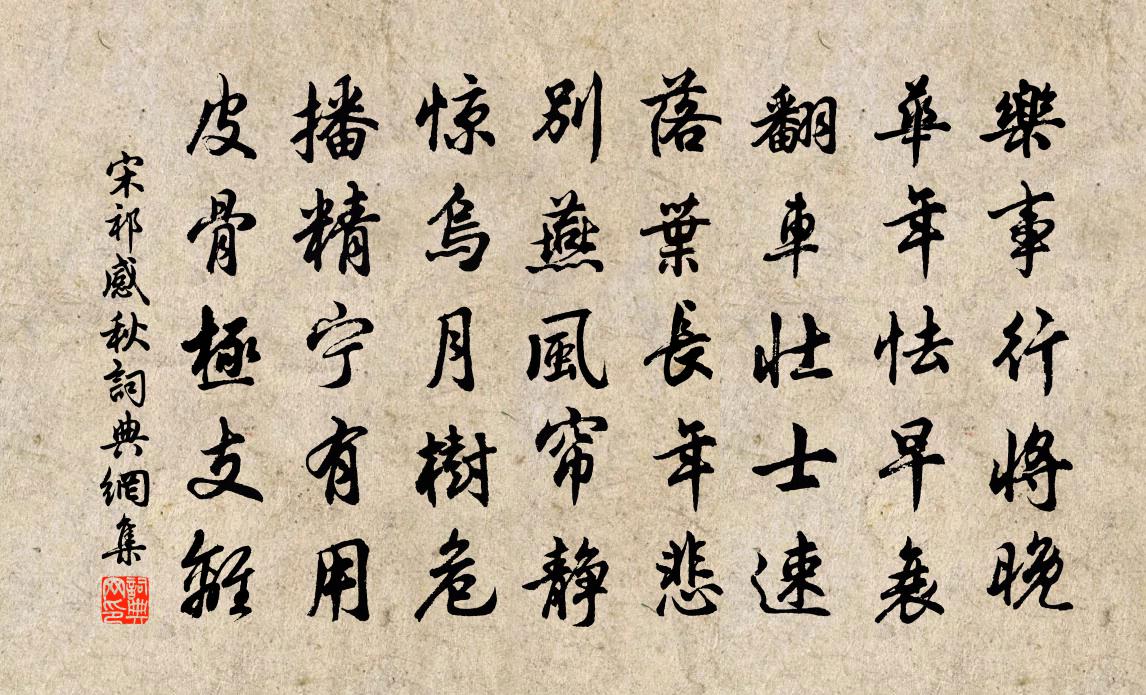 樂事行將晚
華年怯早衰
翻車壯士速
落葉長年悲
別燕風帘静
惊烏月樹危
播精宁有用
皮骨極支離
宋祁感秋詞典網集
詞典网印